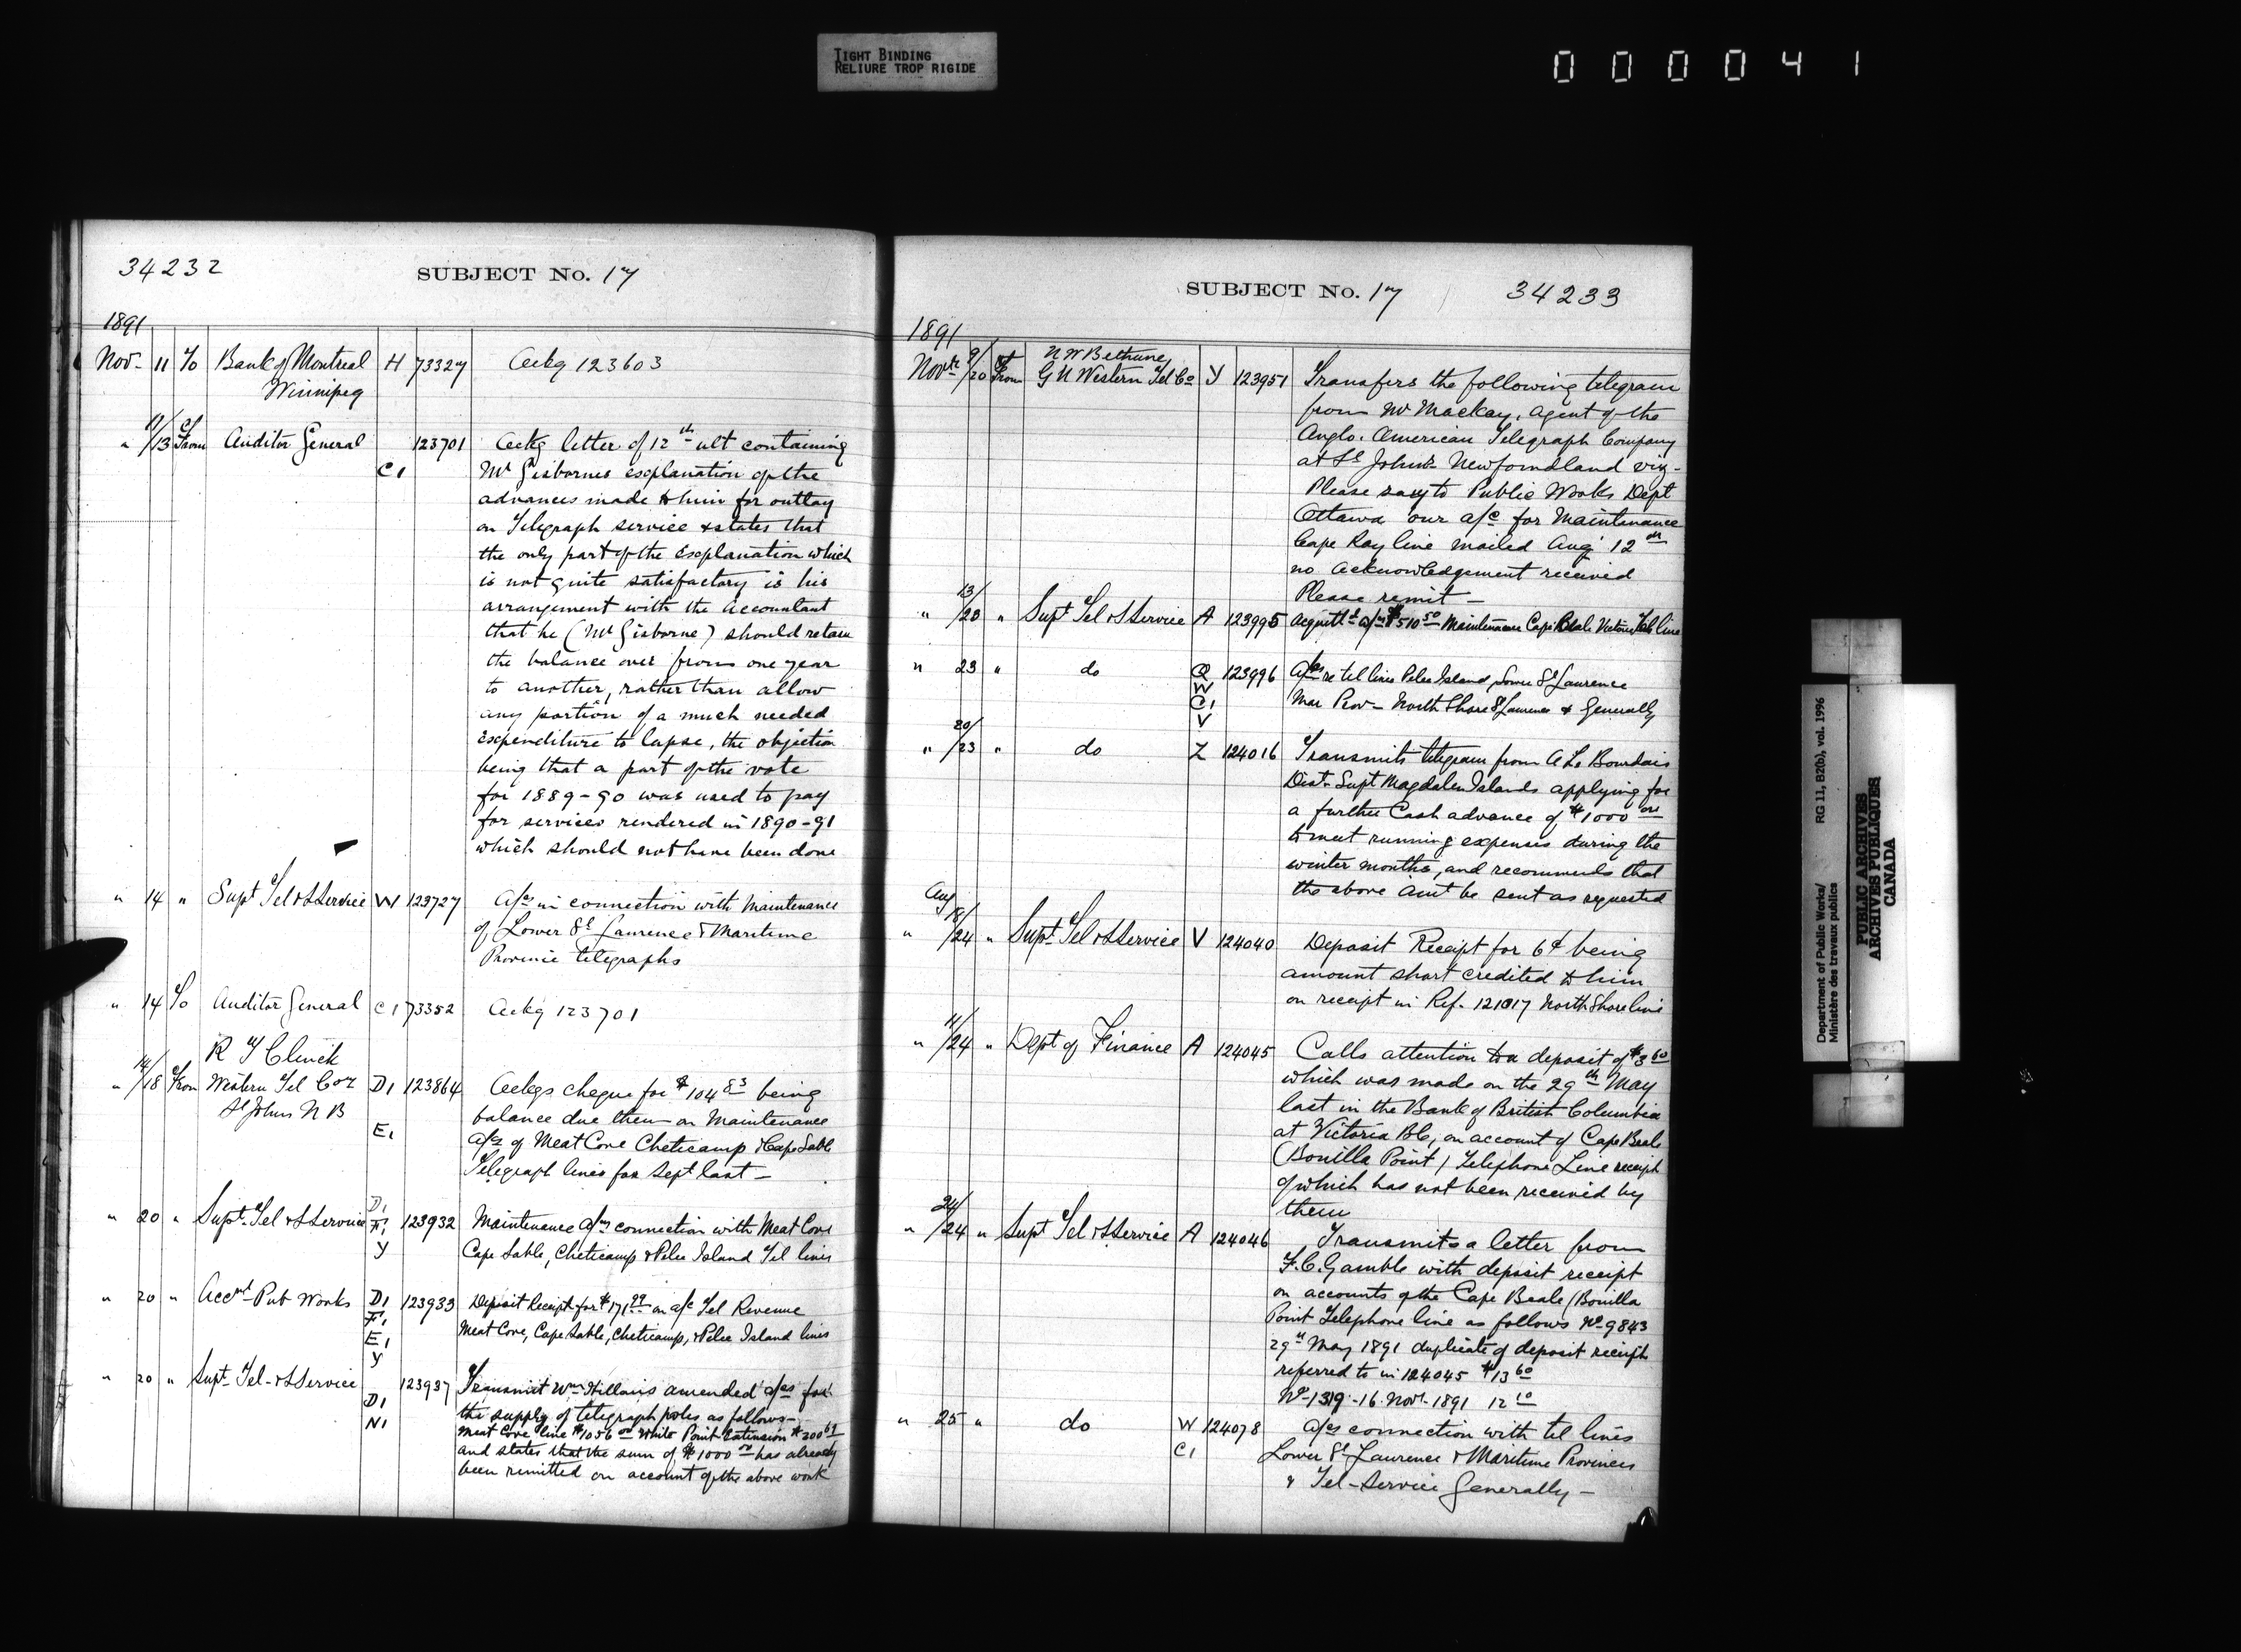 TIGHT BINDING
RELIURE TROP RIGIDE
000041
34232
SUBJECT No. 17
1891
Nov- 11 To Bank of Montreal H 73327 Ackg 123603
Winnipeg
" 11/13 From Auditor General 123701 Ackg letter of 12th ult containing
C1 Mr Gisbornes explanation of the
advances made to him for outlay
on Telegraph service & states that
the only part of the Explanation which
is not quite satisfactory is his
arrangement with the Accountant
that he (Mr Gisborne) should retain
the balance over from one year
to another, rather than allow
any portion of a much needed
Expenditure to lapse, the objection
being that a part of the vote
for 1889-90 was used to pay
for services rendered in 1890-91
which should not have been done
" 14 " Supt Tel & S Service W 123727 A/cs in connection with Maintenance
of Lower St Lawrence & Maritime
Province telegraphs
" 14 To Auditor General C1 73352 Ackg 123701
R T Clinch
" 14/18 From Western Tel Coy D1 123864 Ackgs cheque for $104 83 being
St Johns N B balance due them on Maintenance
E1 a/cs of Meat Cove Cheticamp & Cape Sable
Telegraph lines for Sept last -
D1
" 20 " Supt. Tel & S Service F1 123932 Maintenance a/cs connection with Meat Cove
Y Cape Sable, Cheticamp & Pelee Island Tel lines
" 20 " Accnt Pub Works D1 123933 Deposit Receipt for $171 99 on a/c Tel Revenue
F1
E1 Meat Cove, Cape Sable, Cheticamp, & Pelee Island lines
Y
" 20 " Supt Tel- & S Service 123937 Transmit Wm amended a/cs for
D1 the supply of telegraph poles as follows-
N1 Meat Cove line $1056 00 White Point Extension $200
and states that the sum of $1000 00 has already
been remitted on account of the above work
SUBJECT No. 17
34233
1891
N W Bethune
Novr 9/20 From G N Western Tel Co Y 123951 Transfers the following telegram
from Mr Mackay, agent of the
Anglo. American Telegraph Company
at St John's Newfoundland viz-
Please say to Public Works Dept
Ottawa our a/c for Maintenance
Cape Ray line mailed Aug 12th
no acknowledgement received
Please remit -
" 13/20 " Supt Tel & S Service A 123995 a/cs $510 50 Maintenance Cape Beale Victoria Tel line
" 23 " do Q 123996 A/cs re tel lines Pelee Island, Lower St Lawrence
W
C1 Mar Prov- North Shore St Lawrence & Generally
V
" 20/23 " do Z 124016 Transmits telegram from A Le Bourdais
Dist. Supt Magdalen Islands applying for
a further Cash advance of $1000 00
to meet running expenses during the
winter months, and recommends that
the above amt be sent as requested
Aug
" 18/24 " Supt Tel & S Service V 124040 Deposit Receipt for 6¢ being
amount short credited to him
on receipt in Ref. 121017 North Shore line
" 11/24 " Dept of Finance A 124045 Calls attention to a deposit of $3 60
which was made on the 29th May
last in the Bank of British Columbia
at Victoria BC, on account of Cape Beale
(Bonilla Point) Telephone Line receipt
of which has not been received by
them
" 24/24 " Supt Tel & S Service A 124046 Transmits a letter from
F. C. Gamble with deposit receipt
on accounts of the Cape Beale (Bonilla
Point Telephone line as follows No 9843
29th May 1891 duplicate of deposit receipt
referred to in 124045 $13 60
No-1319-16 Novr 1891 12 10
" 25 " do W 124078 A/cs connection with tel lines
C1 Lower St Lawrence & Maritime Provinces
& Tel-Service Generally -
Department of Public Works/ RG 11, B2(b), vol. 1996
Ministère des travaux publics
PUBLIC ARCHIVES
ARCHIVES PUBLIQUES
CANADA